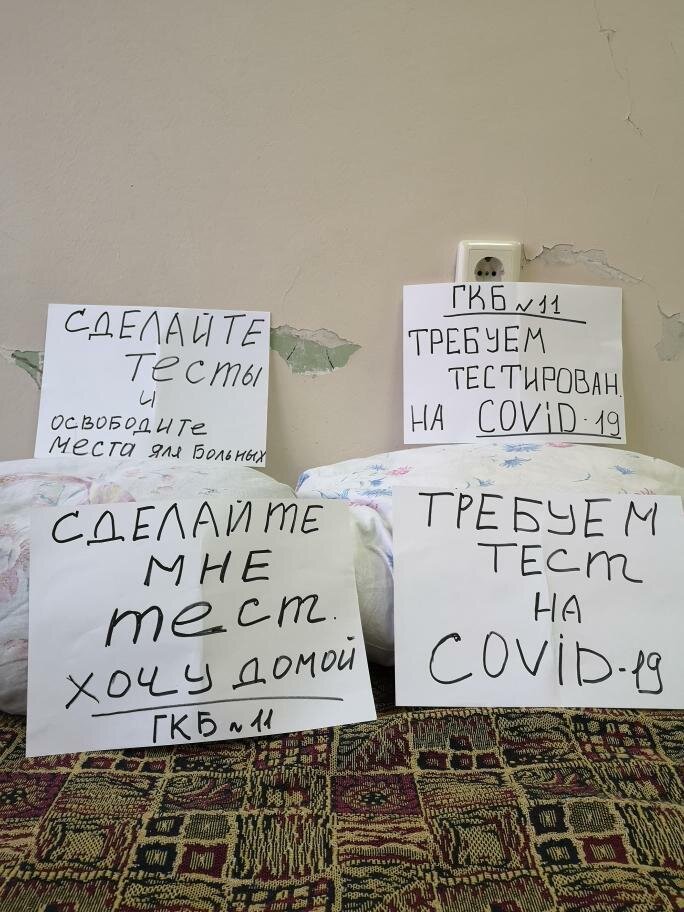 СДЕЛАЙТЕ
Тесты
и
ОСВОБОДИТЕ
места для больных
ГКБ №11
ТРЕБУЕМ
ТЕСТИРОВАН.
НА COVID-19
СДЕЛАЙТЕ
МНЕ
тест.
ХОЧУ ДОМОЙ
ГКБ №11
ТРЕБУЕМ
ТЕСТ
НА
COVID-19